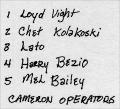 1 Loyd Vight
2 Chet Kolakoski
3 Lato
4 Harry Bezio
5 Mel Bailey
CAMERON OPERATORS